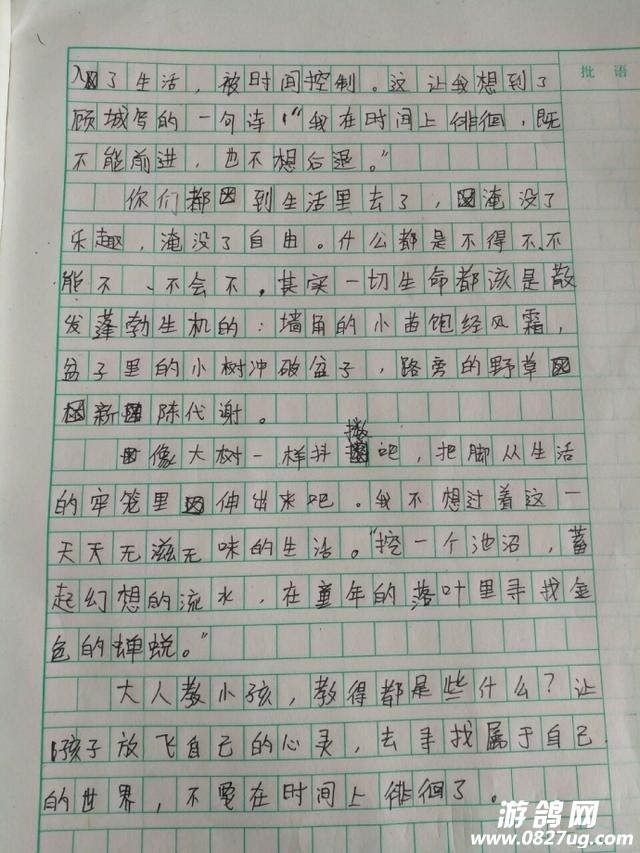 批语
入了生活，被时间控制。这让我想到了
顾城写的一句诗："我在时间上徘徊，既
不能前进，也不想后退。"
你们都到生活里去了，淹没了
乐趣，淹没了自由。什么都是不得不、不
能不、不会不。其实一切生命都该是散
发蓬勃生机的：墙角的小苗饱经风霜，
盆子里的小树冲破盆子，路旁的野草
新陈代谢。
像大树一样抖擞吧，把脚从生活
的牢笼里伸出来吧。我不想过着这一
天天无滋无味的生活。"挖一个池沼，蓄
起幻想的流水，在童年的落叶里寻找金
色的蝉蜕。"
大人教小孩，教得都是些什么？让
孩子放飞自己的心灵，去寻找属于自己
的世界，不要在时间上徘徊了。
游鸽网
www.0827ug.com